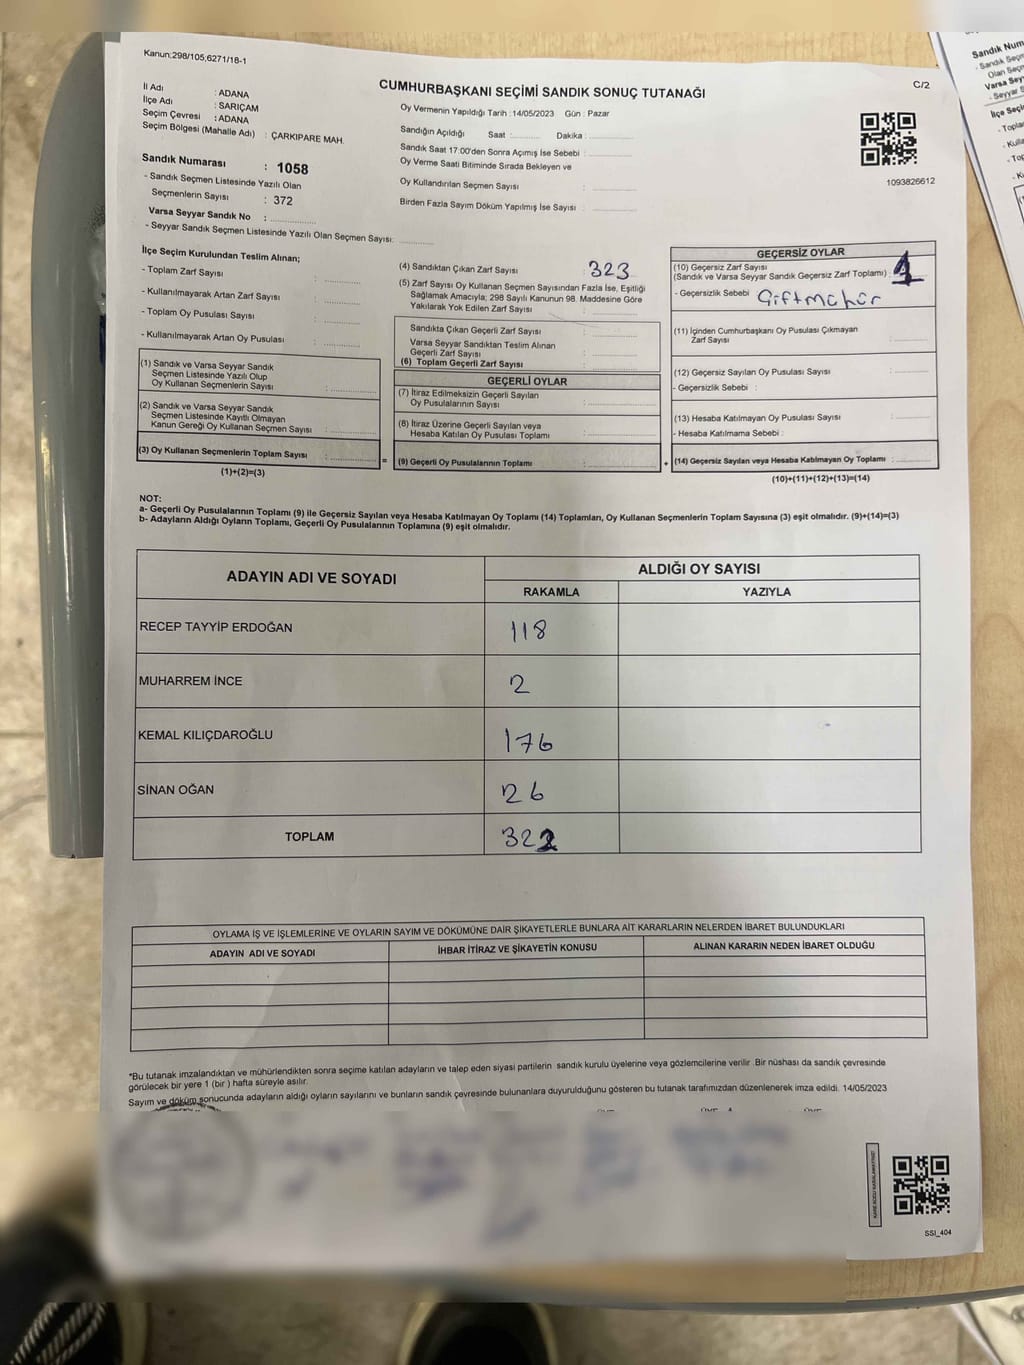 Kanun:298/105;6271/18-1
CUMHURBAŞKANI SEÇİMİ SANDIK SONUÇ TUTANAĞI
C/2
İl Adı : ADANA
İlçe Adı : SARIÇAM
Seçim Çevresi : ADANA
Seçim Bölgesi (Mahalle Adı) : ÇARKIPARE MAH.
Sandık Numarası : 1058
- Sandık Seçmen Listesinde Yazılı Olan
Seçmenlerin Sayısı : 372
Varsa Seyyar Sandık No :
- Seyyar Sandık Seçmen Listesinde Yazılı Olan Seçmen Sayısı:
Oy Vermenin Yapıldığı Tarih :14/05/2023 Gün : Pazar
Sandığın Açıldığı Saat : Dakika :
Sandık Saat 17:00'den Sonra Açımış İse Sebebi :
Oy Verme Saati Bitiminde Sırada Bekleyen ve
Oy Kullandırılan Seçmen Sayısı :
Birden Fazla Sayım Döküm Yapılmış İse Sayısı :
1093826612
İlçe Seçim Kurulundan Teslim Alınan;
- Toplam Zarf Sayısı :
- Kullanılmayarak Artan Zarf Sayısı :
- Toplam Oy Pusulası Sayısı :
- Kullanılmayarak Artan Oy Pusulası :
(1) Sandık ve Varsa Seyyar Sandık
Seçmen Listesinde Yazılı Olup
Oy Kullanan Seçmenlerin Sayısı :
(2) Sandık ve Varsa Seyyar Sandık
Seçmen Listesinde Kayıtlı Olmayan
Kanun Gereği Oy Kullanan Seçmen Sayısı :
(3) Oy Kullanan Seçmenlerin Toplam Sayısı :
(1)+(2)=(3)
(4) Sandıktan Çıkan Zarf Sayısı : 323
(5) Zarf Sayısı Oy Kullanan Seçmen Sayısından Fazla İse, Eşitliği
Sağlamak Amacıyla; 298 Sayılı Kanunun 98. Maddesine Göre
Yakılarak Yok Edilen Zarf Sayısı :
Sandıkta Çıkan Geçerli Zarf Sayısı :
Varsa Seyyar Sandıktan Teslim Alınan
Geçerli Zarf Sayısı :
(6) Toplam Geçerli Zarf Sayısı
GEÇERLİ OYLAR
(7) İtiraz Edilmeksizin Geçerli Sayılan
Oy Pusulalarının Sayısı :
(8) İtiraz Üzerine Geçerli Sayılan veya
Hesaba Katılan Oy Pusulası Toplamı :
= (9) Geçerli Oy Pusulalarının Toplamı :
GEÇERSİZ OYLAR
(10) Geçersiz Zarf Sayısı
(Sandık ve Varsa Seyyar Sandık Geçersiz Zarf Toplamı) : 1
- Geçersizlik Sebebi : Çiftmühür
(11) İçinden Cumhurbaşkanı Oy Pusulası Çıkmayan
Zarf Sayısı :
(12) Geçersiz Sayılan Oy Pusulası Sayısı :
- Geçersizlik Sebebi :
(13) Hesaba Katılmayan Oy Pusulası Sayısı :
- Hesaba Katılmama Sebebi :
+ (14) Geçersiz Sayılan veya Hesaba Katılmayan Oy Toplamı :
(10)+(11)+(12)+(13)=(14)
NOT:
a- Geçerli Oy Pusulalarının Toplamı (9) ile Geçersiz Sayılan veya Hesaba Katılmayan Oy Toplamı (14) Toplamları, Oy Kullanan Seçmenlerin Toplam Sayısına (3) eşit olmalıdır. (9)+(14)=(3)
b- Adayların Aldığı Oyların Toplamı, Geçerli Oy Pusulalarının Toplamına (9) eşit olmalıdır.
ADAYIN ADI VE SOYADI
ALDIĞI OY SAYISI
RAKAMLA YAZIYLA
RECEP TAYYİP ERDOĞAN 118
MUHARREM İNCE 2
KEMAL KILIÇDAROĞLU 176
SİNAN OĞAN 26
TOPLAM 322
OYLAMA İŞ VE İŞLEMLERİNE VE OYLARIN SAYIM VE DÖKÜMÜNE DAİR ŞİKAYETLERLE BUNLARA AİT KARARLARIN NELERDEN İBARET BULUNDUKLARI
ADAYIN ADI VE SOYADI İHBAR İTİRAZ VE ŞİKAYETİN KONUSU ALINAN KARARIN NEDEN İBARET OLDUĞU
*Bu tutanak imzalandıktan ve mühürlendikten sonra seçime katılan adayların ve talep eden siyasi partilerin sandık kurulu üyelerine veya gözlemcilerine verilir. Bir nüshası da sandık çevresinde
görülecek bir yere 1 (bir ) hafta süreyle asılır.
Sayım ve döküm sonucunda adayların aldığı oyların sayılarını ve bunların sandık çevresinde bulunanlara duyurulduğunu gösteren bu tutanak tarafımızdan düzenlenerek imza edildi. 14/05/2023
SSI_404